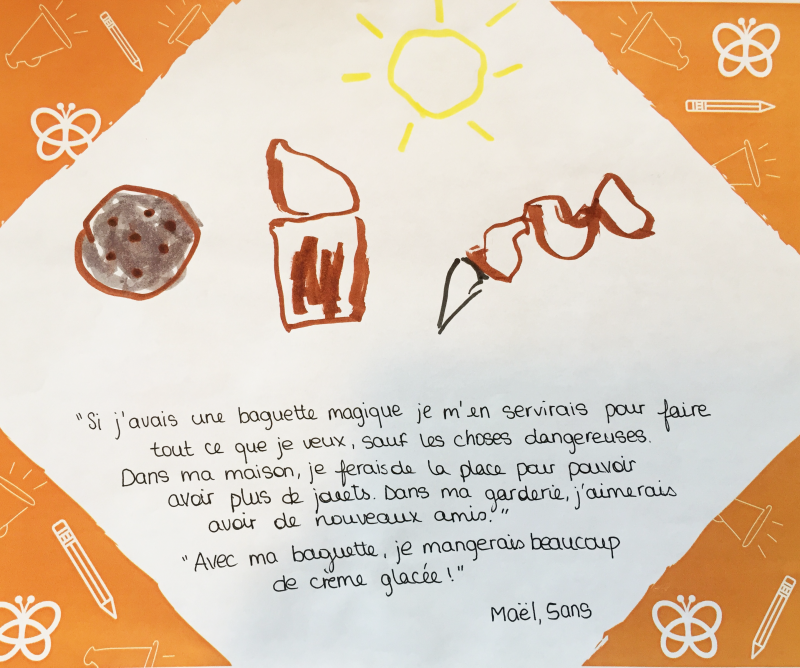 "Si j'avais une baguette magique je m'en servirais pour faire
tout ce que je veux, sauf les choses dangereuses.
Dans ma maison, je ferais de la place pour pouvoir
avoir plus de jouets. Dans ma garderie, j'aimerais
avoir de nouveaux amis."
"Avec ma baguette, je mangerais beaucoup
de crème glacée!"
Maël, 5ans